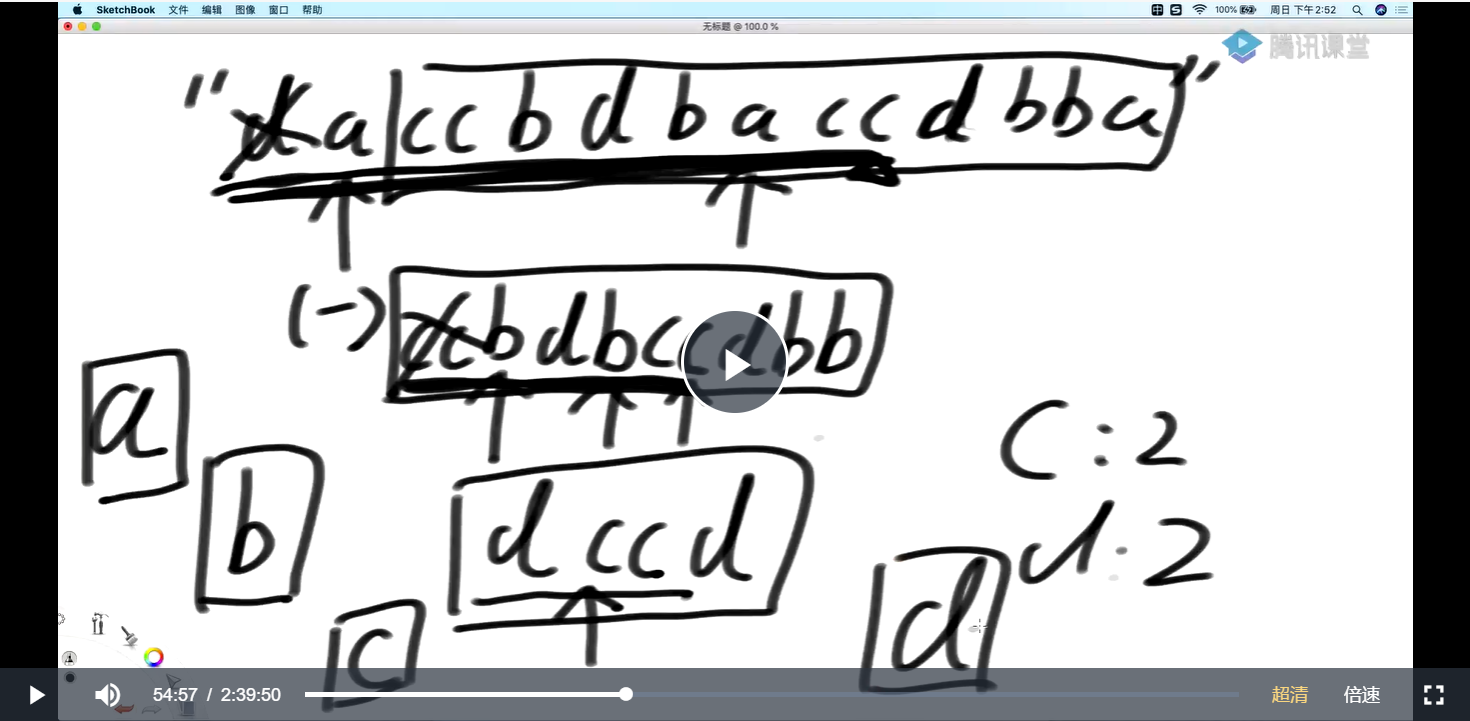 SketchBook 文件 编辑 图像 窗口 帮助 100% 周日 下午2:52
无标题 @ 100.0 %
腾讯课堂
"d a c c b d b a c c d b b a"
(一) c c b d b c c d b b
a
c : 2
b
d c c d
d : 2
c
d
54:57 / 2:39:50 超清 倍速